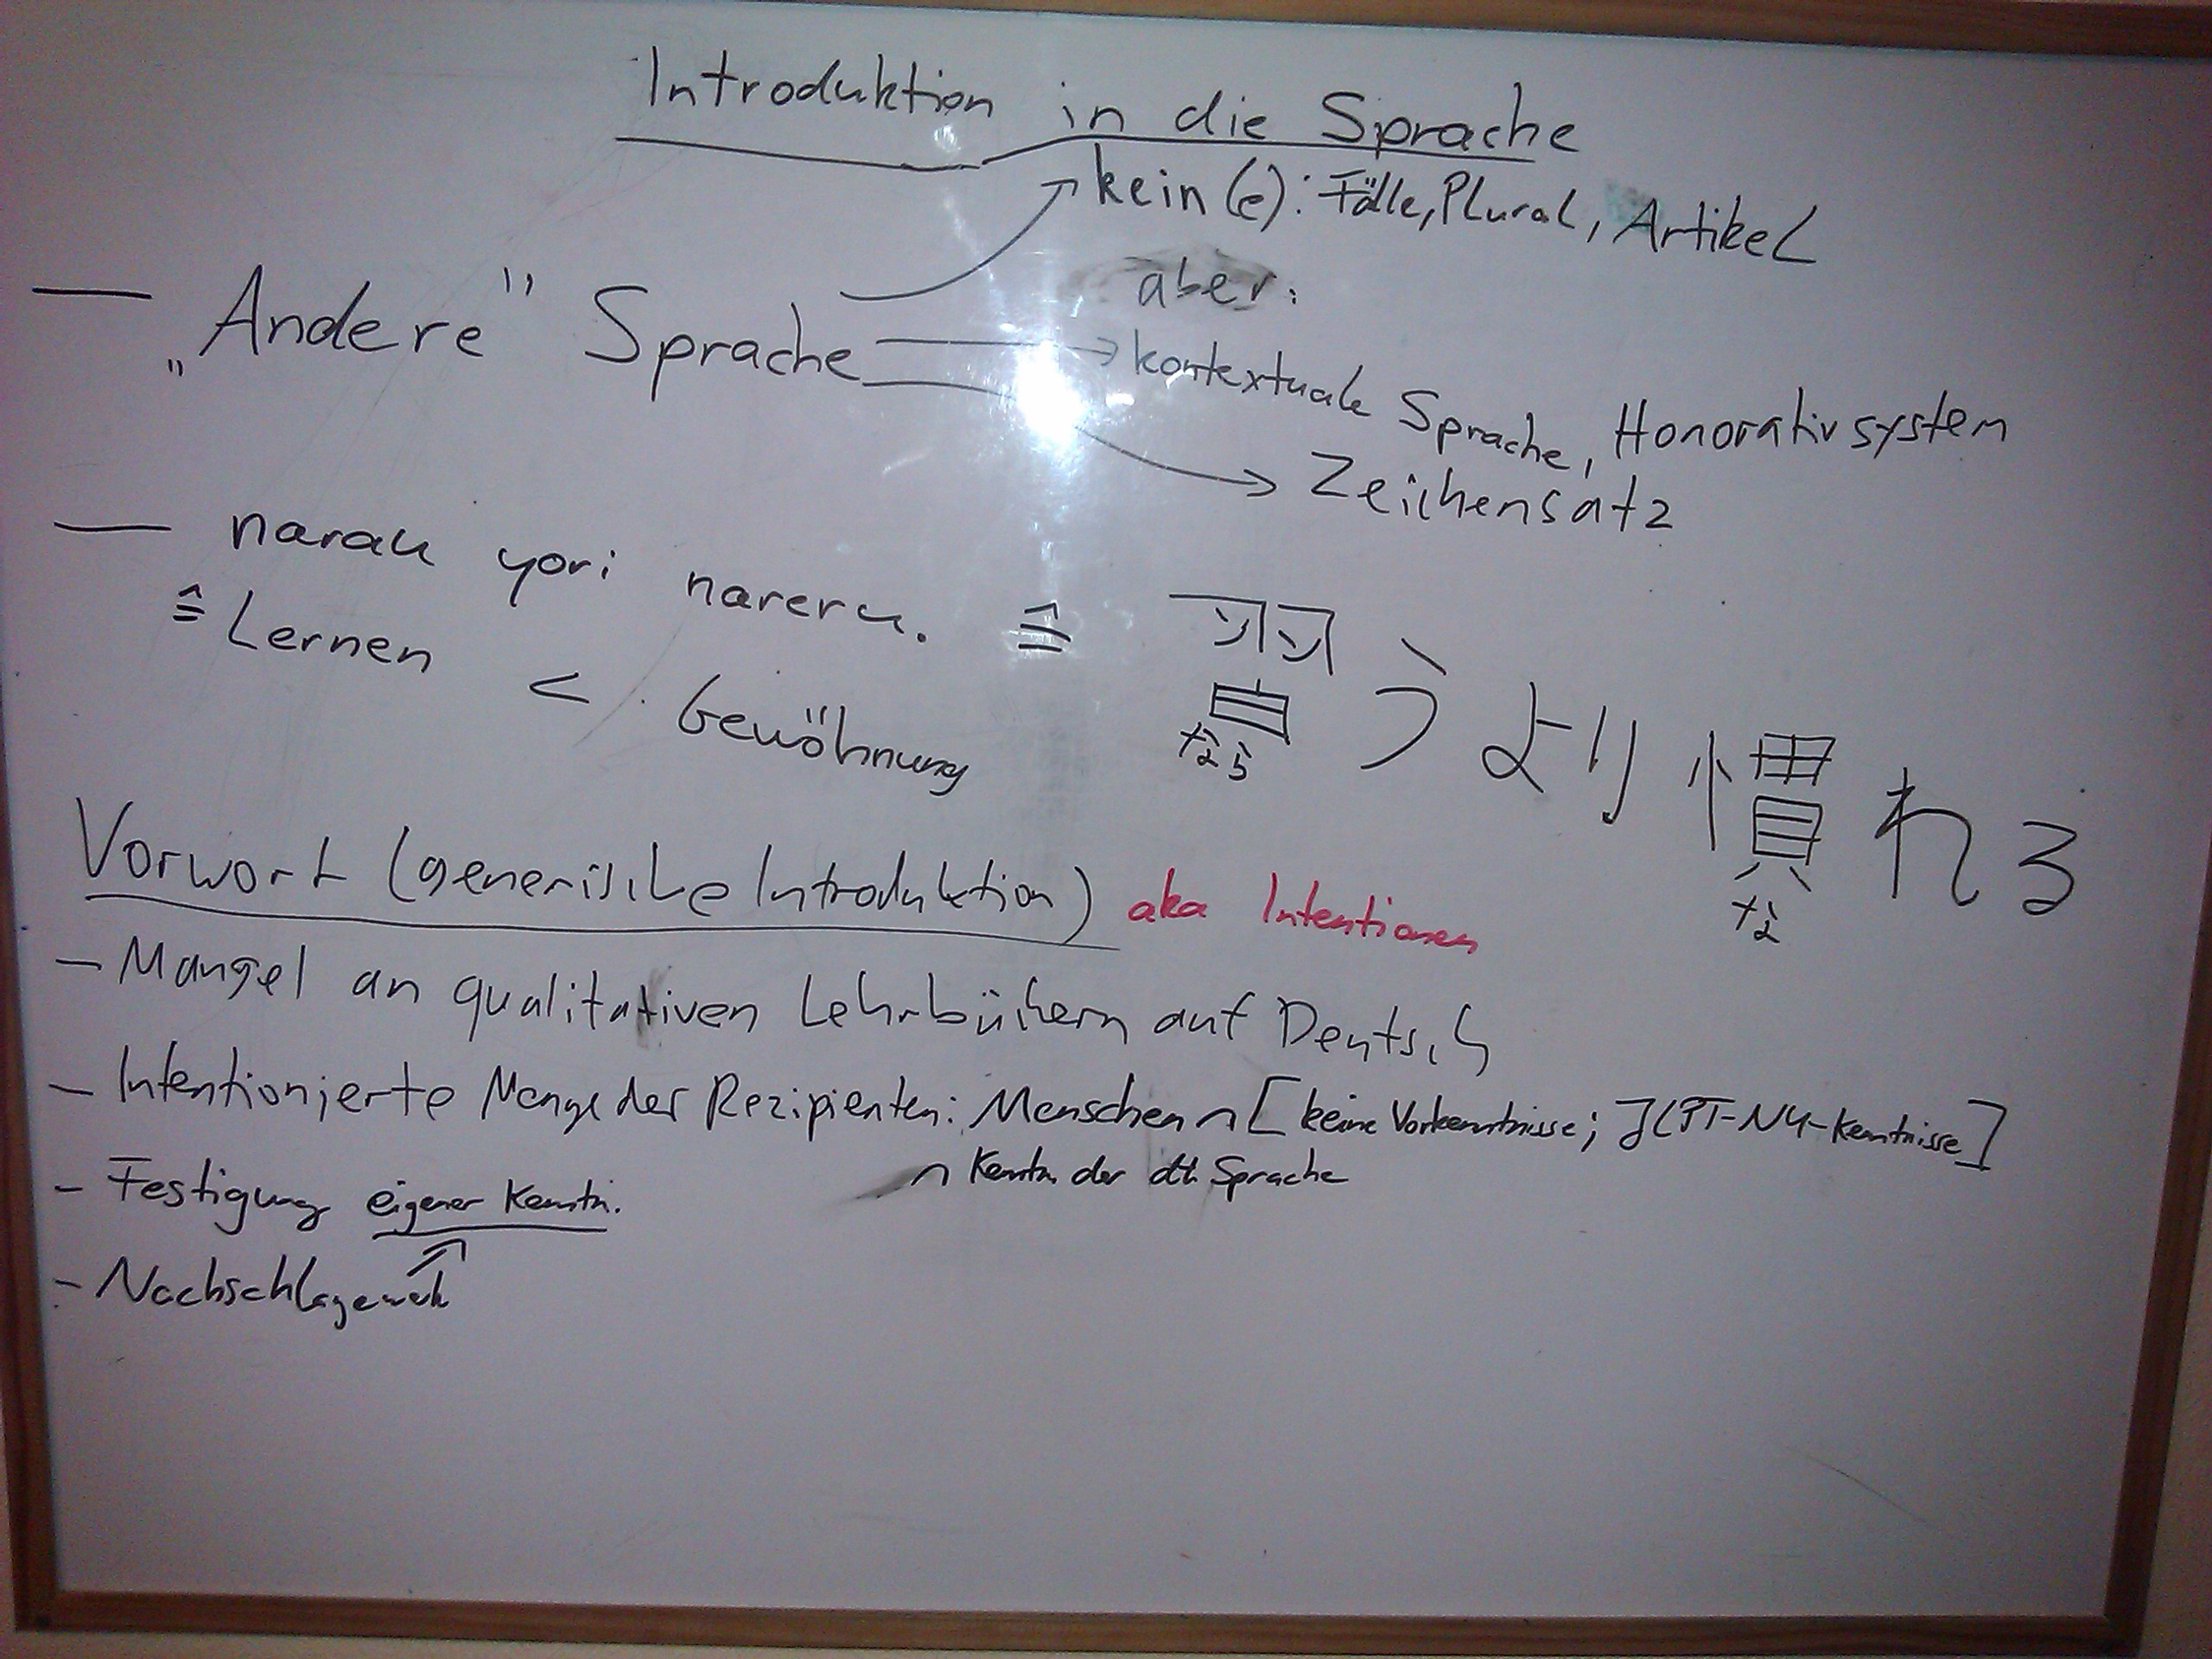 Introduktion in die Sprache
kein(e): Fälle, Plural, Artikel
aber:
— „Andere" Sprache
→ kontextuale Sprache, Honorativsystem
→ Zeichensatz
— narau yori nareru. ≙ 習うより慣れる
なら な
≙ Lernen < Gewöhnung
Vorwort (generische Introduktion) aka Intentionen
- Mangel an qualitativen Lehrbüchern auf Deutsch
- Intentionierte Menge der Rezipienten: Menschen ∩ [keine Vorkenntnisse; JLPT-N4-Kenntnisse]
∩ Kenntn. der dt. Sprache
- Festigung eigener Kenntn.
- Nachschlagewerk